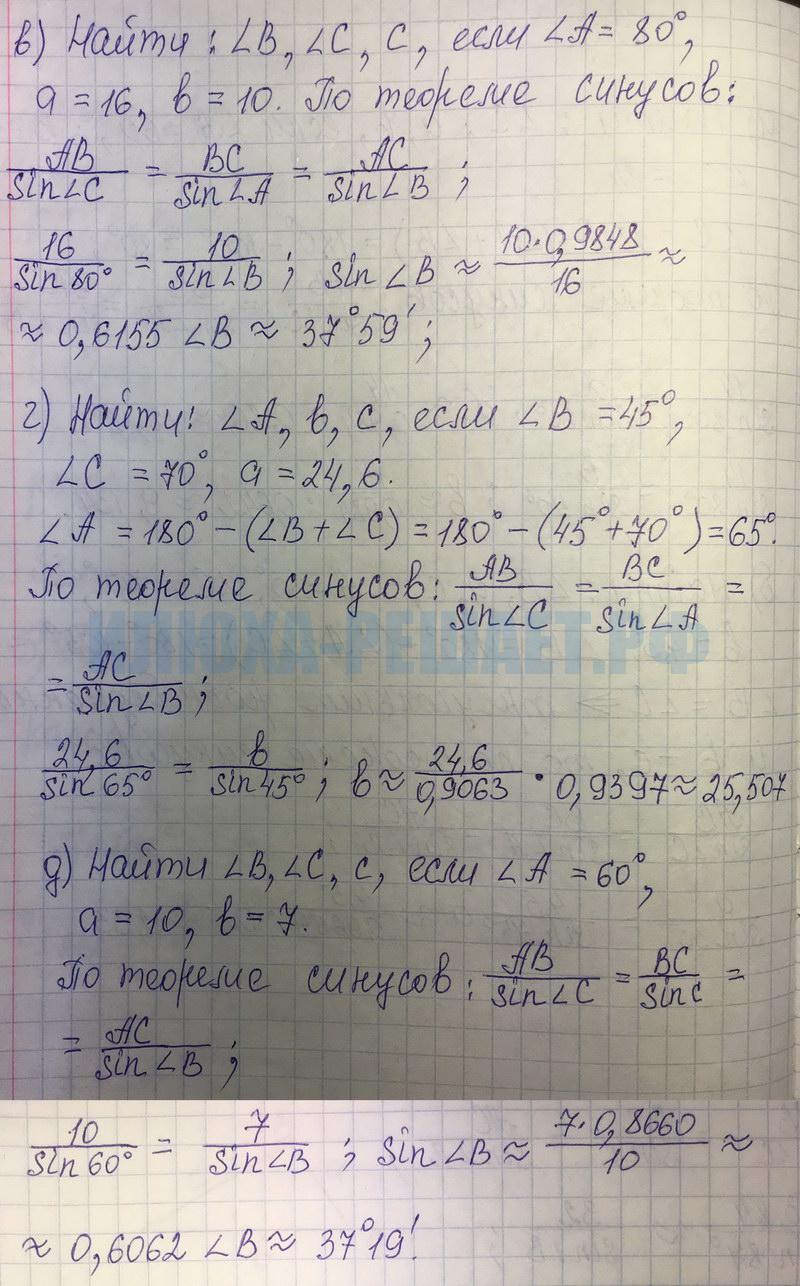 в) Найти: ∠B, ∠C, c, если ∠A = 80°,
a = 16, b = 10. По теореме синусов:
AB/sin∠C = BC/sin∠A = AC/sin∠B ;
16/sin 80° = 10/sin∠B ; sin∠B ≈ 10·0,9848/16 ≈
≈ 0,6155 ∠B ≈ 37°59′;
г) Найти: ∠A, b, c, если ∠B = 45°,
∠C = 70°, a = 24,6.
∠A = 180° – (∠B + ∠C) = 180° – (45° + 70°) = 65°.
По теореме синусов: AB/sin∠C = BC/sin∠A =
ИЛЮХА-РЕШАЕТ.РФ
= AC/sin∠B ;
24,6/sin 65° = b/sin 45° ; b ≈ 24,6/0,9063 · 0,9397 ≈ 25,507
д) Найти ∠B, ∠C, c, если ∠A = 60°,
a = 10, b = 7.
По теореме синусов: AB/sin∠C = BC/sin C =
= AC/sin∠B ;
10/sin 60° = 7/sin∠B ; sin∠B ≈ 7·0,8660/10 ≈
≈ 0,6062 ∠B ≈ 37°19′.